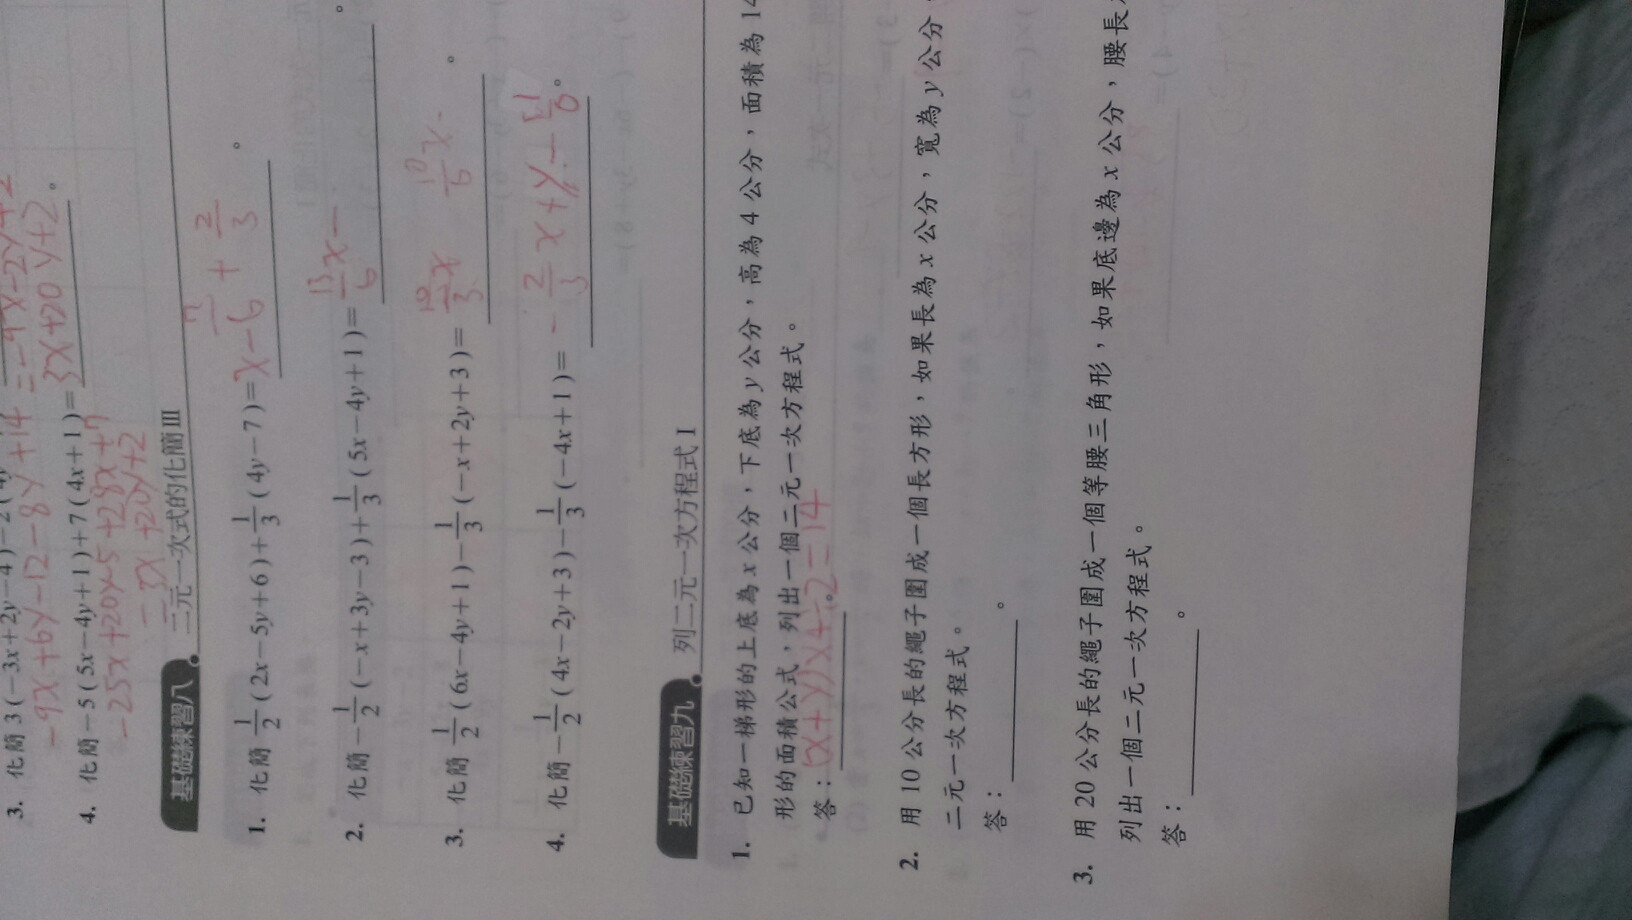 3. 化簡 3(-3x+2y-4)-2(4y
=-9x-2y+2
-9x+6y-12-8y+14
4. 化簡-5(5x-4y+1)+7(4x+1)=3x+20y+2。
-25x+20y-5+28x+7
=3x+20y+2
基礎練習八 二元一次式的化簡 III
1. 化簡 1/2(2x-5y+6)+1/3(4y-7)= 。
2. 化簡-1/2(-x+3y-3)+1/3(5x-4y+1)=13/6x- 。
3. 化簡 1/2(6x-4y+1)-1/3(-x+2y+3)= 。
4. 化簡-1/2(4x-2y+3)-1/3(-4x+1)= 。
基礎練習九 列二元一次方程式 I
1. 已知一梯形的上底為 x 公分,下底為 y 公分,高為 4 公分,面積為 14
形的面積公式,列出一個二元一次方程式。
答:(x+y)×4÷2=14。
2. 用 10 公分長的繩子圍成一個長方形,如果長為 x 公分,寬為 y 公分
二元一次方程式。
答: 。
3. 用 20 公分長的繩子圍成一個等腰三角形,如果底邊為 x 公分,腰長
列出一個二元一次方程式。
答: 。